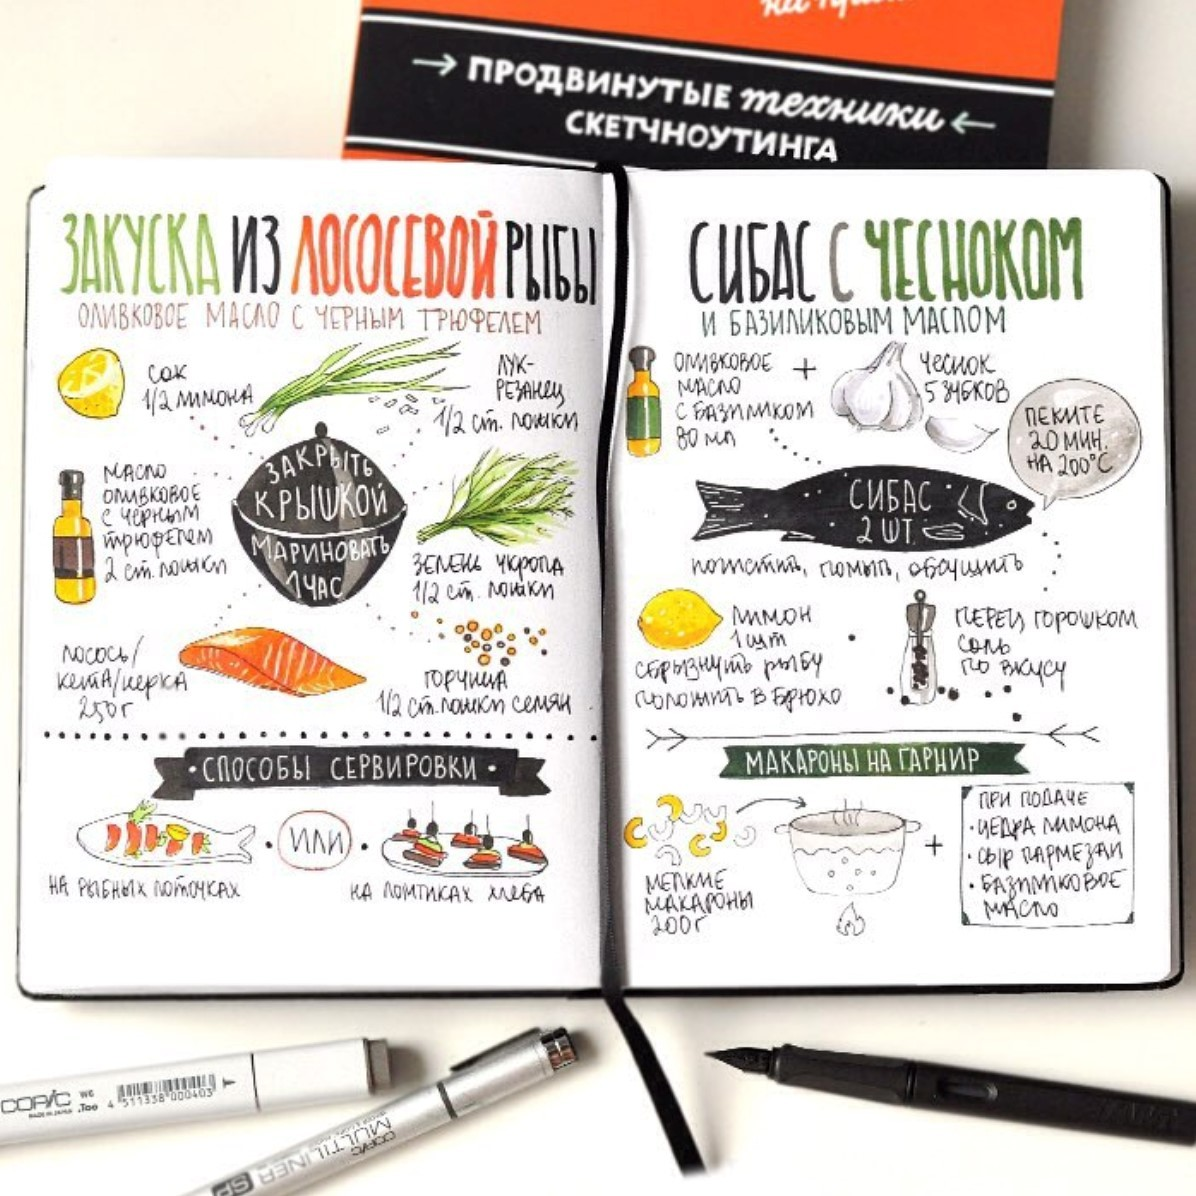 → ПРОДВИНУТЫЕ техники ←
СКЕТЧНОУТИНГА
ЗАКУСКА ИЗ ЛОСОСЕВОЙ РЫБЫ
ОЛИВКОВОЕ МАСЛО С ЧЕРНЫМ ТРЮФЕЛЕМ
СОК
1/2 ЛИМОНА
ЛУК-
РЕЗАНЕЦ
1/2 СТ. ЛОЖКИ
МАСЛО
ОЛИВКОВОЕ
С ЧЕРНЫМ
ТРЮФЕЛЕМ
2 СТ. ЛОЖКИ
ЗАКРЫТЬ
КРЫШКОЙ
МАРИНОВАТЬ
1 ЧАС
ЗЕЛЕНЬ УКРОПА
1/2 СТ. ЛОЖКИ
ЛОСОСЬ/
КЕТА/НЕРКА
250 Г
ГОРЧИЦА
1/2 СТ. ЛОЖКИ СЕМЯН
СПОСОБЫ СЕРВИРОВКИ
ИЛИ
НА РЫБНЫХ ЛОТОЧКАХ
НА ЛОМТИКАХ ХЛЕБА
СИБАС С ЧЕСНОКОМ
И БАЗИЛИКОВЫМ МАСЛОМ
ОЛИВКОВОЕ
МАСЛО
С БАЗИЛИКОМ
80 МЛ
+
ЧЕСНОК
5 ЗУБКОВ
ПЕКИТЕ
20 МИН.
НА 200°С
СИБАС
2 ШТ.
ПОЧИСТИТЬ, ПОМЫТЬ, ОБСУШИТЬ
ЛИМОН
1 ШТ
СБРЫЗНУТЬ РЫБУ
ПОЛОЖИТЬ В БРЮХО
ПЕРЕЦ ГОРОШКОМ
СОЛЬ
ПО ВКУСУ
МАКАРОНЫ НА ГАРНИР
МЕЛКИЕ
МАКАРОНЫ
200 Г
+
ПРИ ПОДАЧЕ
· ЦЕДРА ЛИМОНА
· СЫР ПАРМЕЗАН
· БАЗИЛИКОВОЕ
МАСЛО
COPIC
MADE IN JAPAN
W6
.Too
4 511338 000403
COPIC
MULTILINER SP